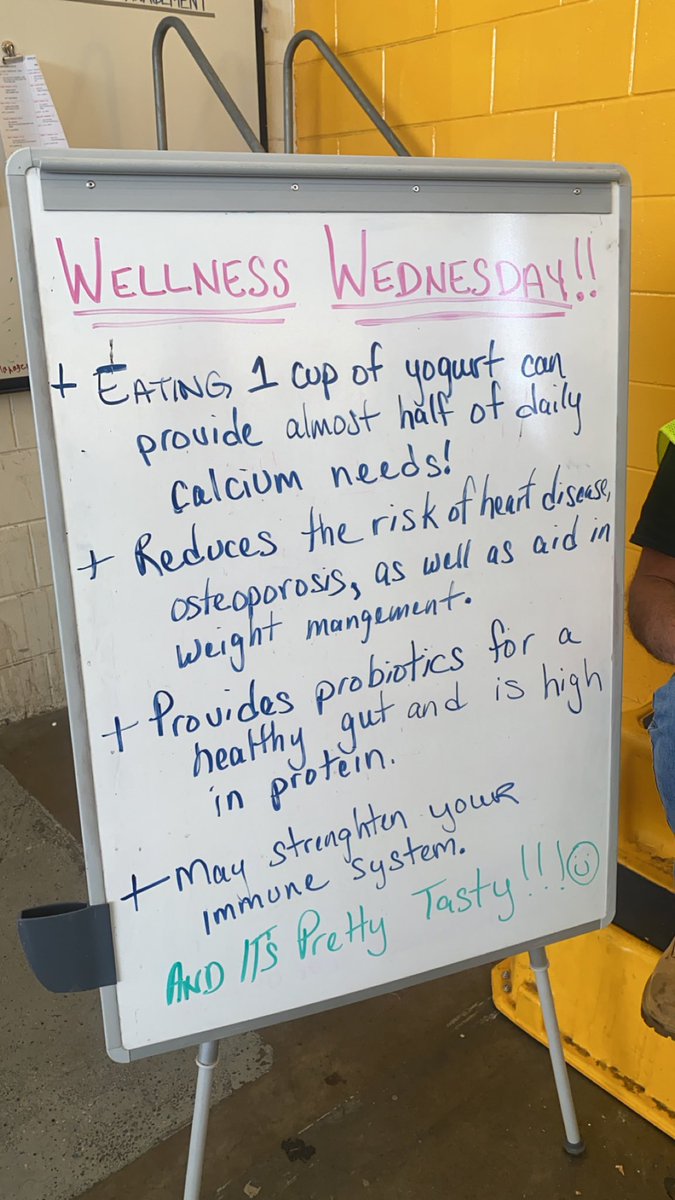 NAGEMENT
WELLNESS WEDNESDAY!!
+ EATING 1 cup of yogurt can
provide almost half of daily
calcium needs!
+ Reduces the risk of heart disease,
osteoporosis, as well as aid in
weight mangement.
+ Provides probiotics for a
healthy gut and is high
in protein.
+ May strenghten your
immune system.
AND IT'S Pretty Tasty!!! ☺